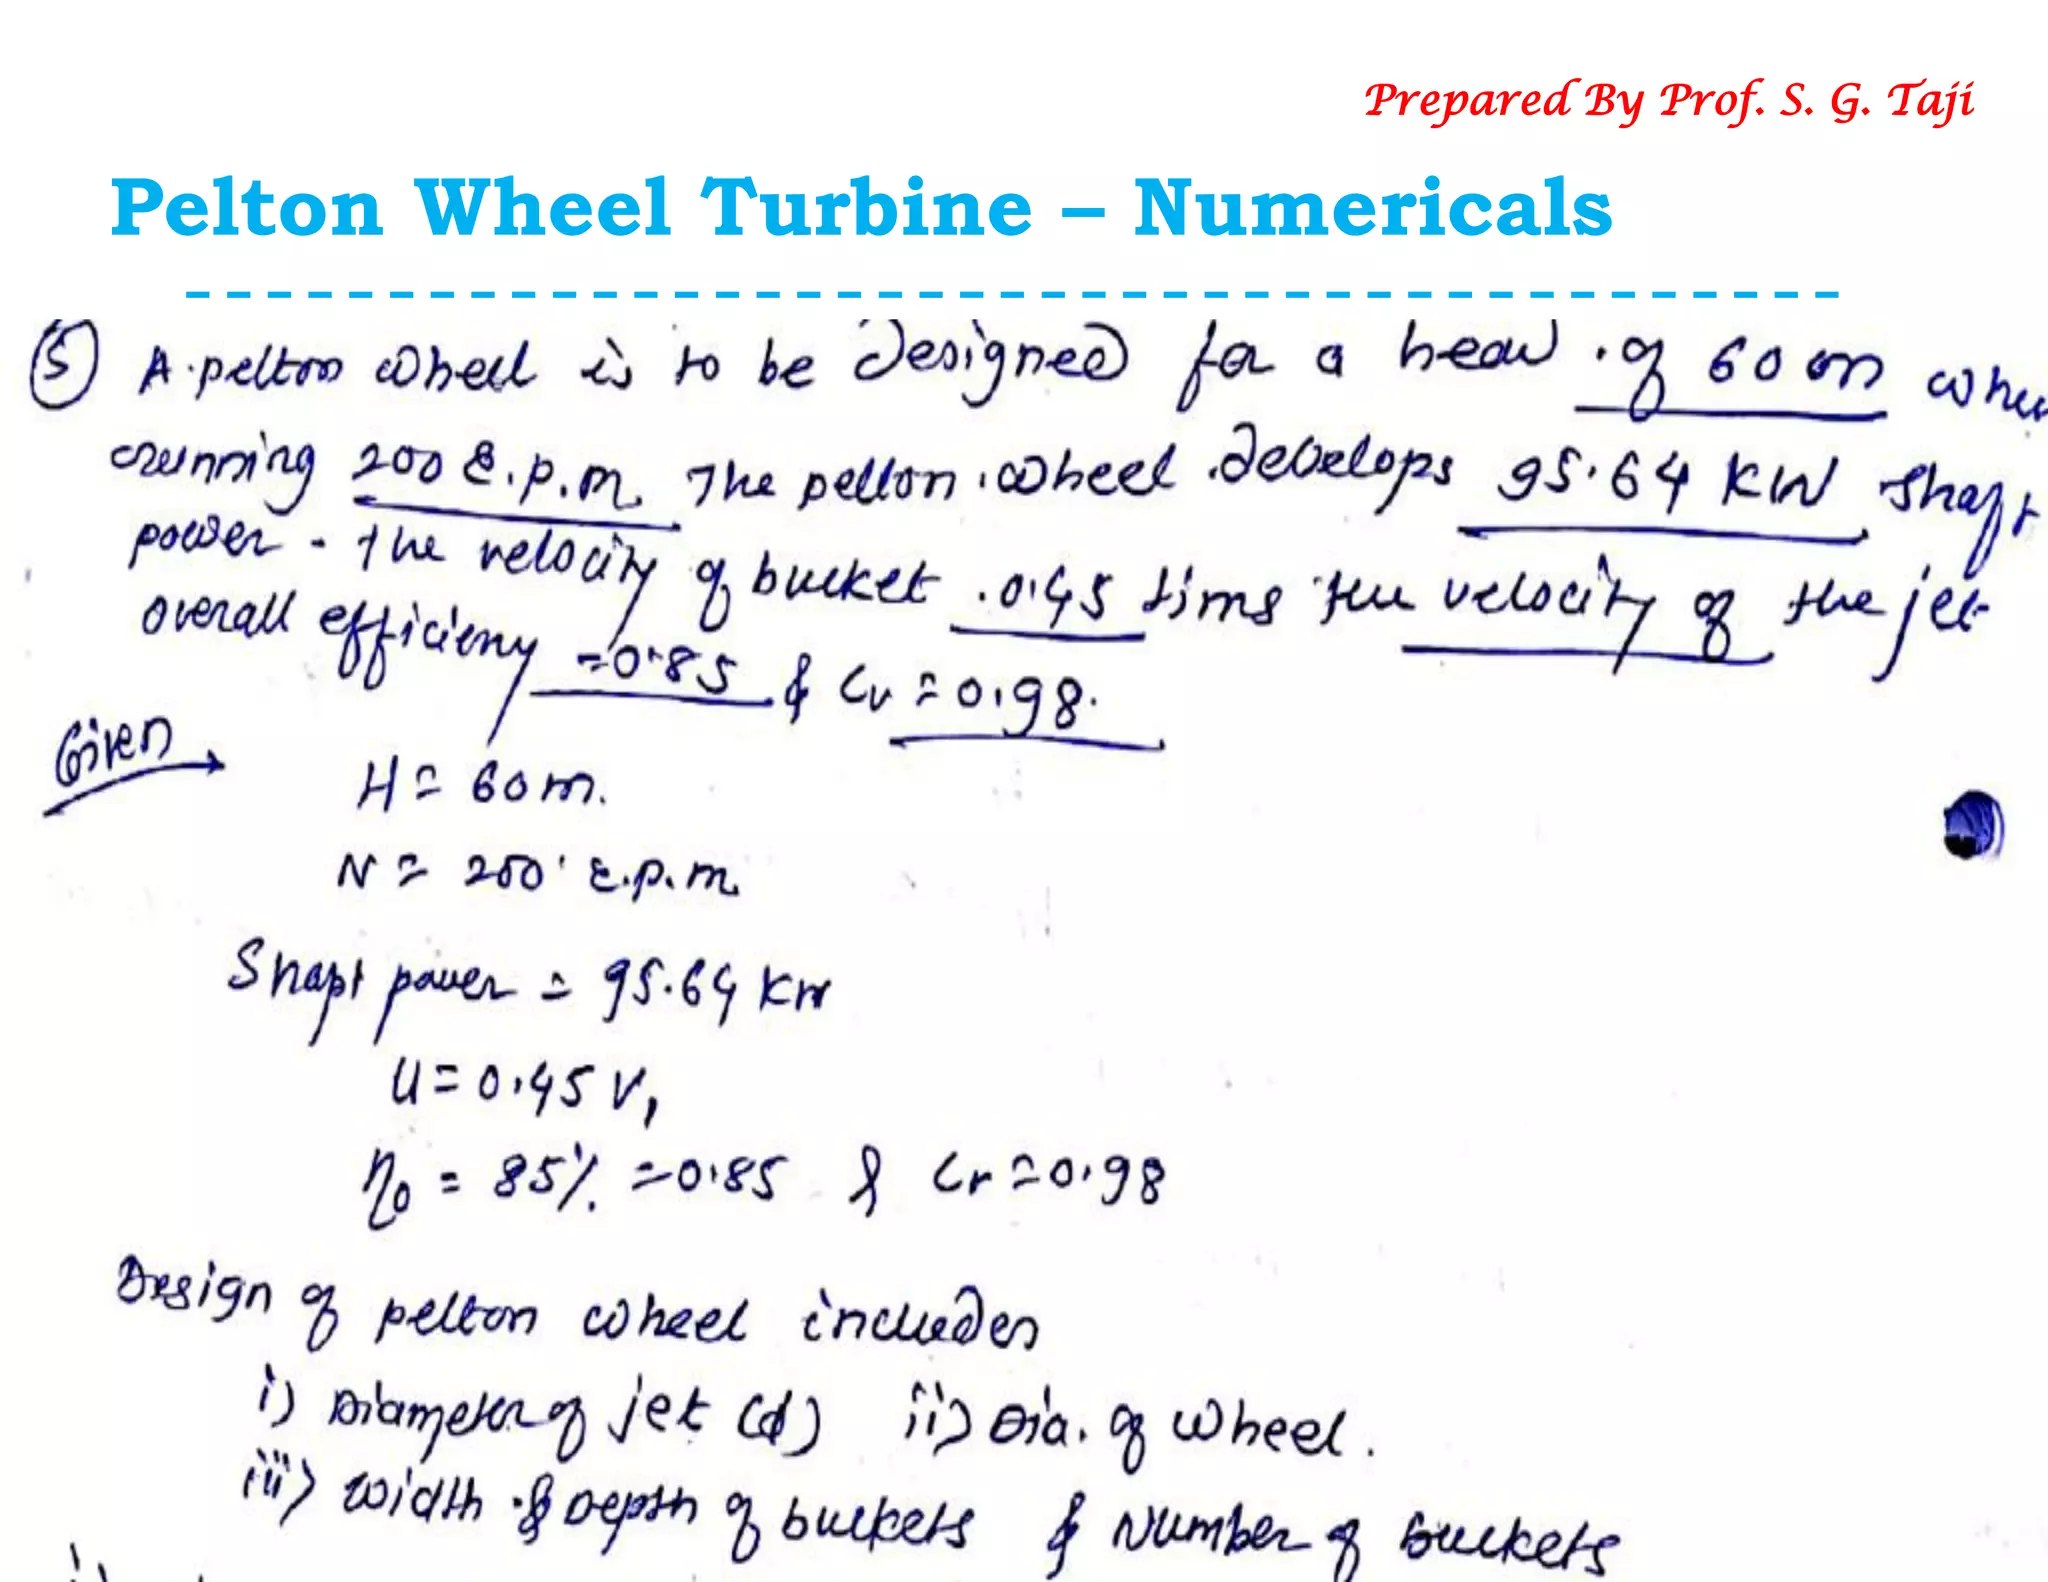 Prepared By Prof. S. G. Taji
Pelton Wheel Turbine – Numericals
5 A pelton wheel is to be designed for a head of 60 m when
running 200 r.p.m. The pelton wheel develops 95.64 KW shaft
power. The velocity of bucket 0.45 times the velocity of the jet
overall efficieny =0.85 & Cv = 0.98.
Given
H = 60m.
N = 200 r.p.m.
Shaft power = 95.64 KW
U = 0.45 V1
η0 = 85% = 0.85 & Cv = 0.98
Design of pelton wheel includes
i) Diameter of jet (d) ii) Dia. of wheel.
iii) width & Depth of buckets & Number of buckets